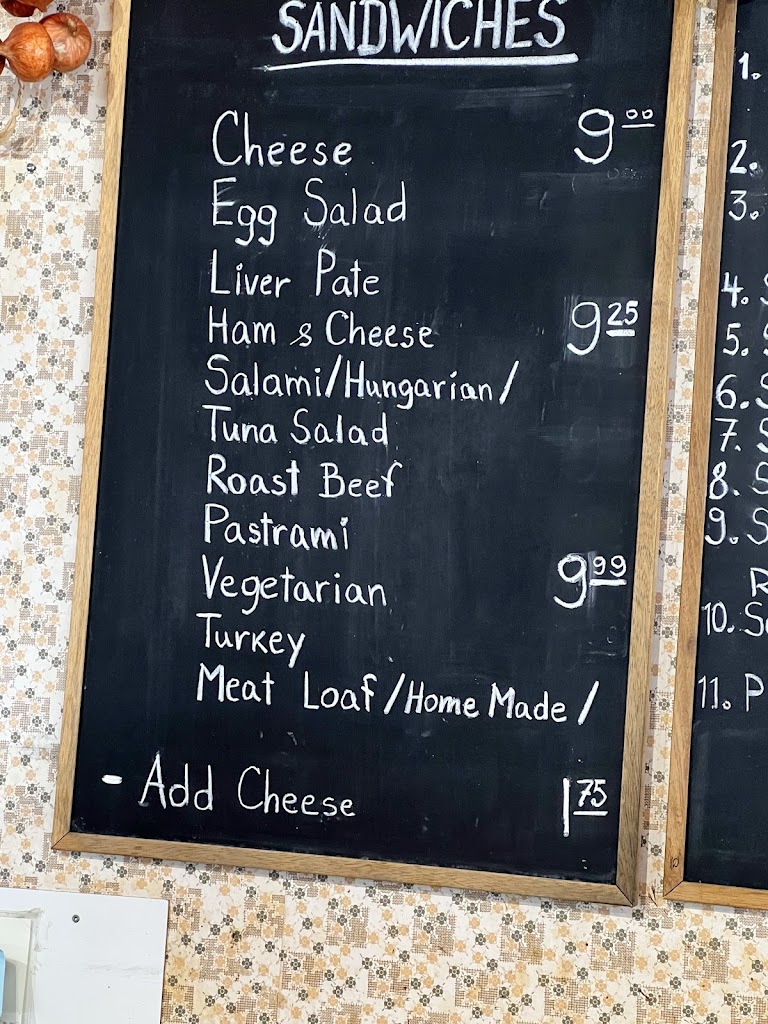 SANDWICHES
Cheese 9 00
Egg Salad
Liver Pate
Ham & Cheese 9 25
Salami/Hungarian/
Tuna Salad
Roast Beef
Pastrami
Vegetarian 9 99
Turkey
Meat Loaf/Home Made/
- Add Cheese 1 75
1.
2.
3.
4.
5.
6.
7.
8.
9.
10.
11. P